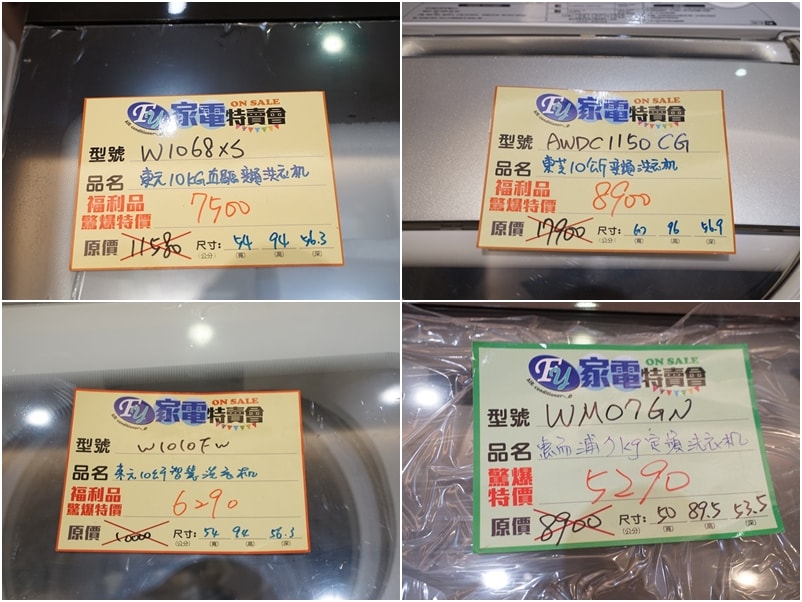 FY 家電特賣會 ON SALE
Air conditioner
型號 W1068XS
品名 東元10KG直驅變頻洗衣机
福利品
驚爆特價 7500
原價 11580 尺寸: 54 94 56.3
(公分) (寬) (高) (深)
FY 家電特賣會 ON SALE
Air conditioner
型號 AWDC1150CG
品名 東芝10公斤變頻洗衣机
福利品
驚爆特價 8900
原價 17900 尺寸: 60 96 56.9
(公分) (寬) (高) (深)
FY 家電特賣會 ON SALE
Air conditioner
型號 W1010FW
品名 東元10公斤智慧洗衣机
福利品
驚爆特價 6290
原價 10000 尺寸: 54 94 56.3
(公分) (寬) (高) (深)
FY 家電特賣會 ON SALE
Air conditioner
型號 WM07GN
品名 惠而浦7kg定頻洗衣机
驚爆
特價 5290
原價 8900 尺寸: 50 89.5 53.5
(公分) (寬) (高) (深)